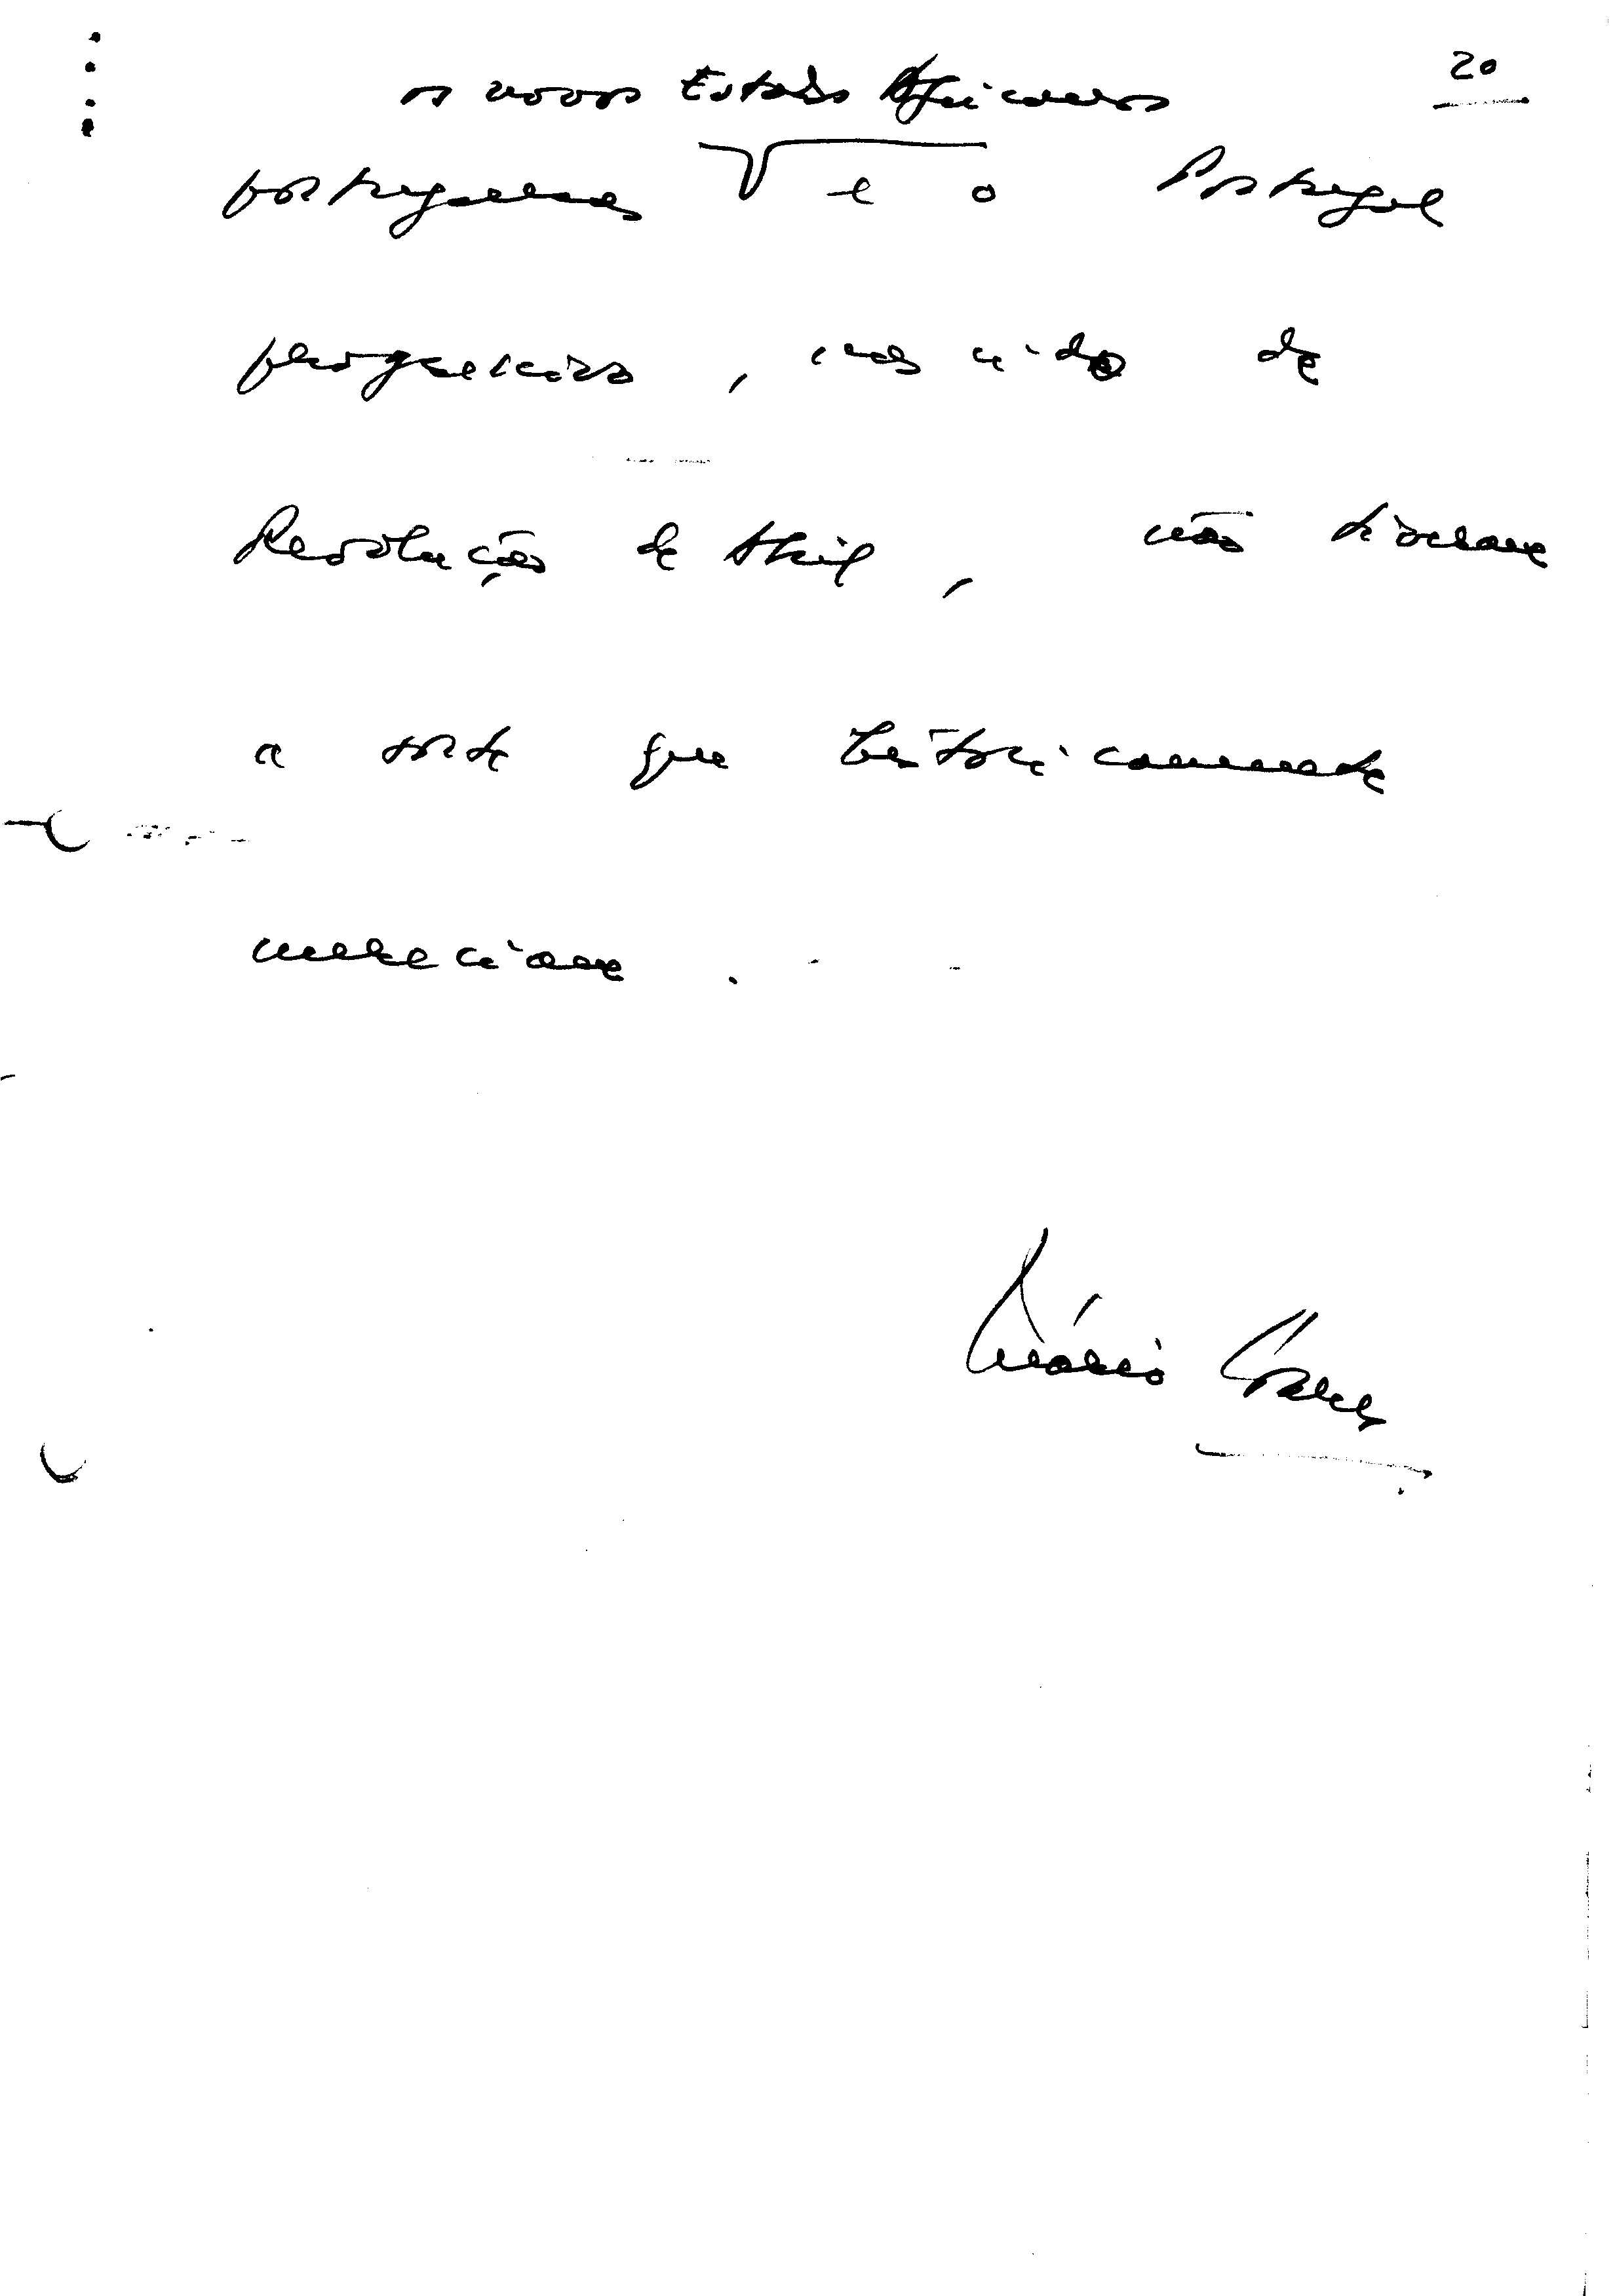 20
os novos Estados Africanos
portuguesas e o Portugal
progressivo, nascido da
Revolução de Abril, não tiveram
a sorte que historicamente
mereciam.
Mário Soares